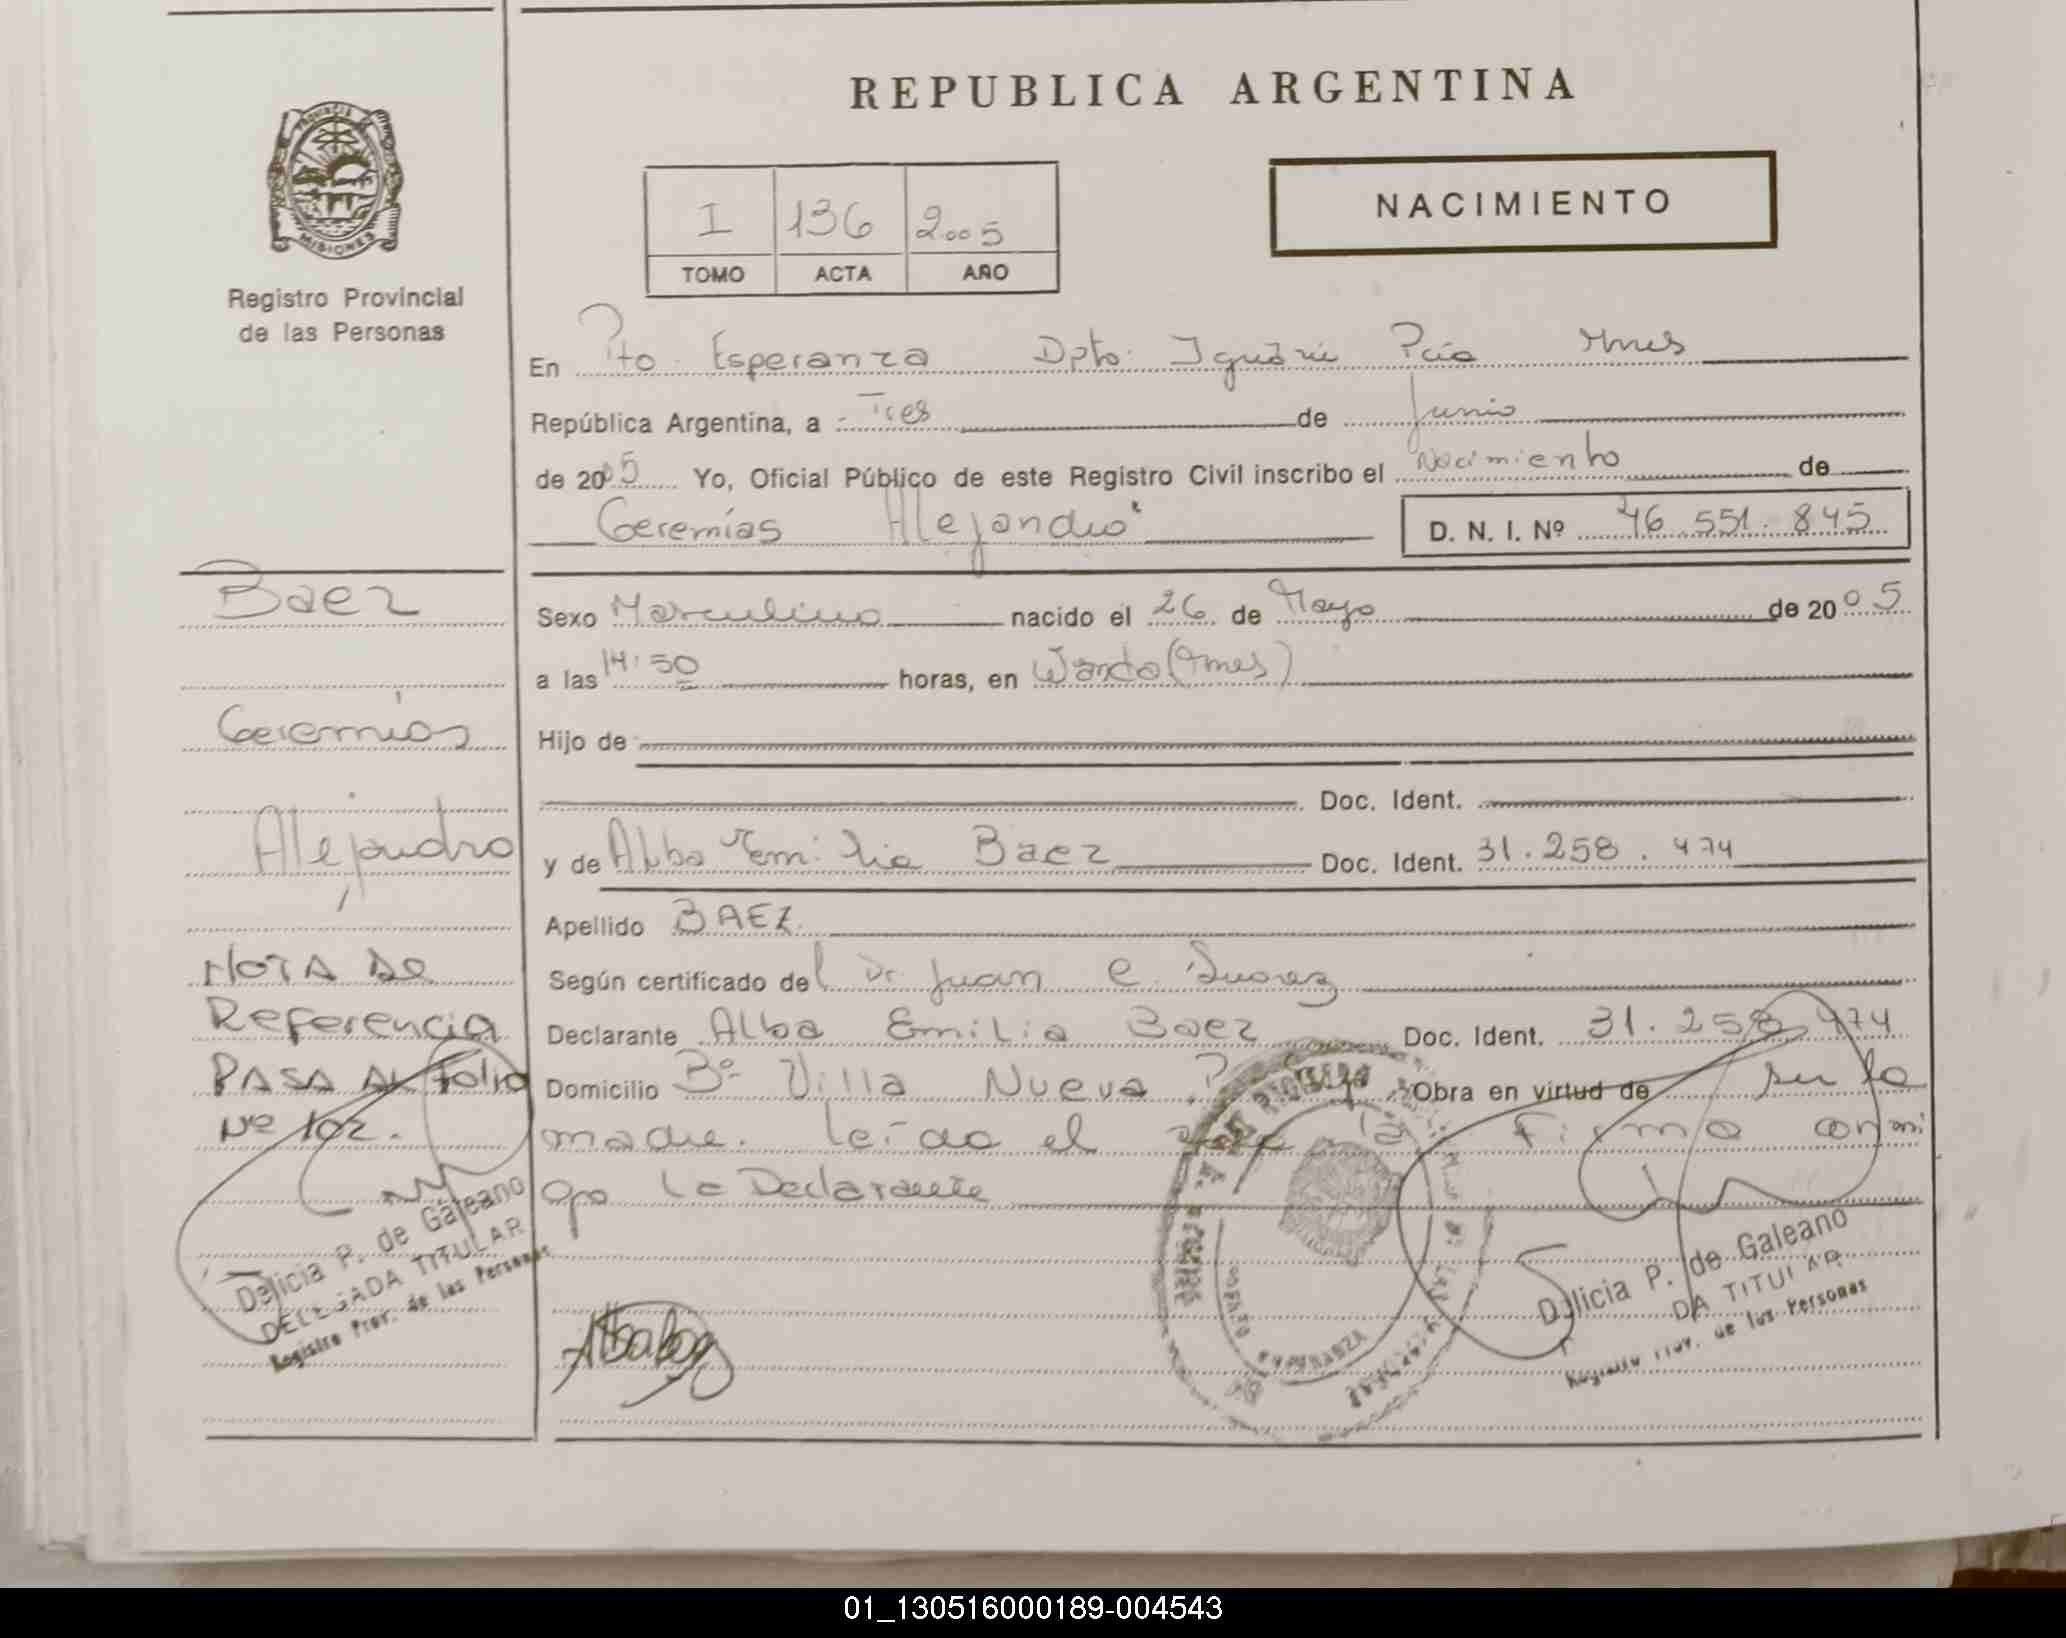 REPUBLICA ARGENTINA
PROVINCIA DE
MISIONES
Registro Provincial
de las Personas
I 136 2005
TOMO ACTA AÑO
NACIMIENTO
En Pto. Esperanza Dpto. Iguazú Pcia Mnes
República Argentina, a Tres de Junio
de 2005 Yo, Oficial Público de este Registro Civil inscribo el Nacimiento de
Geremías Alejandro
D. N. I. Nº 46.551.845
Baez
Geremías
Alejandro
NOTA DE
Referencia
PASA AL Folio
Nº 102.
Delicia P. de Galeano
DELEGADA TITULAR
Registro Prov. de las Personas
Sexo Masculino nacido el 26 de Mayo de 2005
a las 14:50 horas, en Wanda (Mnes)
Hijo de
Doc. Ident.
y de Alba Emilia Baez Doc. Ident. 31.258.474
Apellido BAEZ
Según certificado del Dr Juan C. Suarez
Declarante Alba Emilia Baez Doc. Ident. 31.258.474
Domicilio Bº Villa Nueva P. Obra en virtud de ser la
madre. Leída el acta la Firma conmi
go La Declarante
PUERTO ESPERANZA
MISIONES
Delicia P. de Galeano
DA TITULAR
Registro Prov. de las Personas
01_130516000189-004543